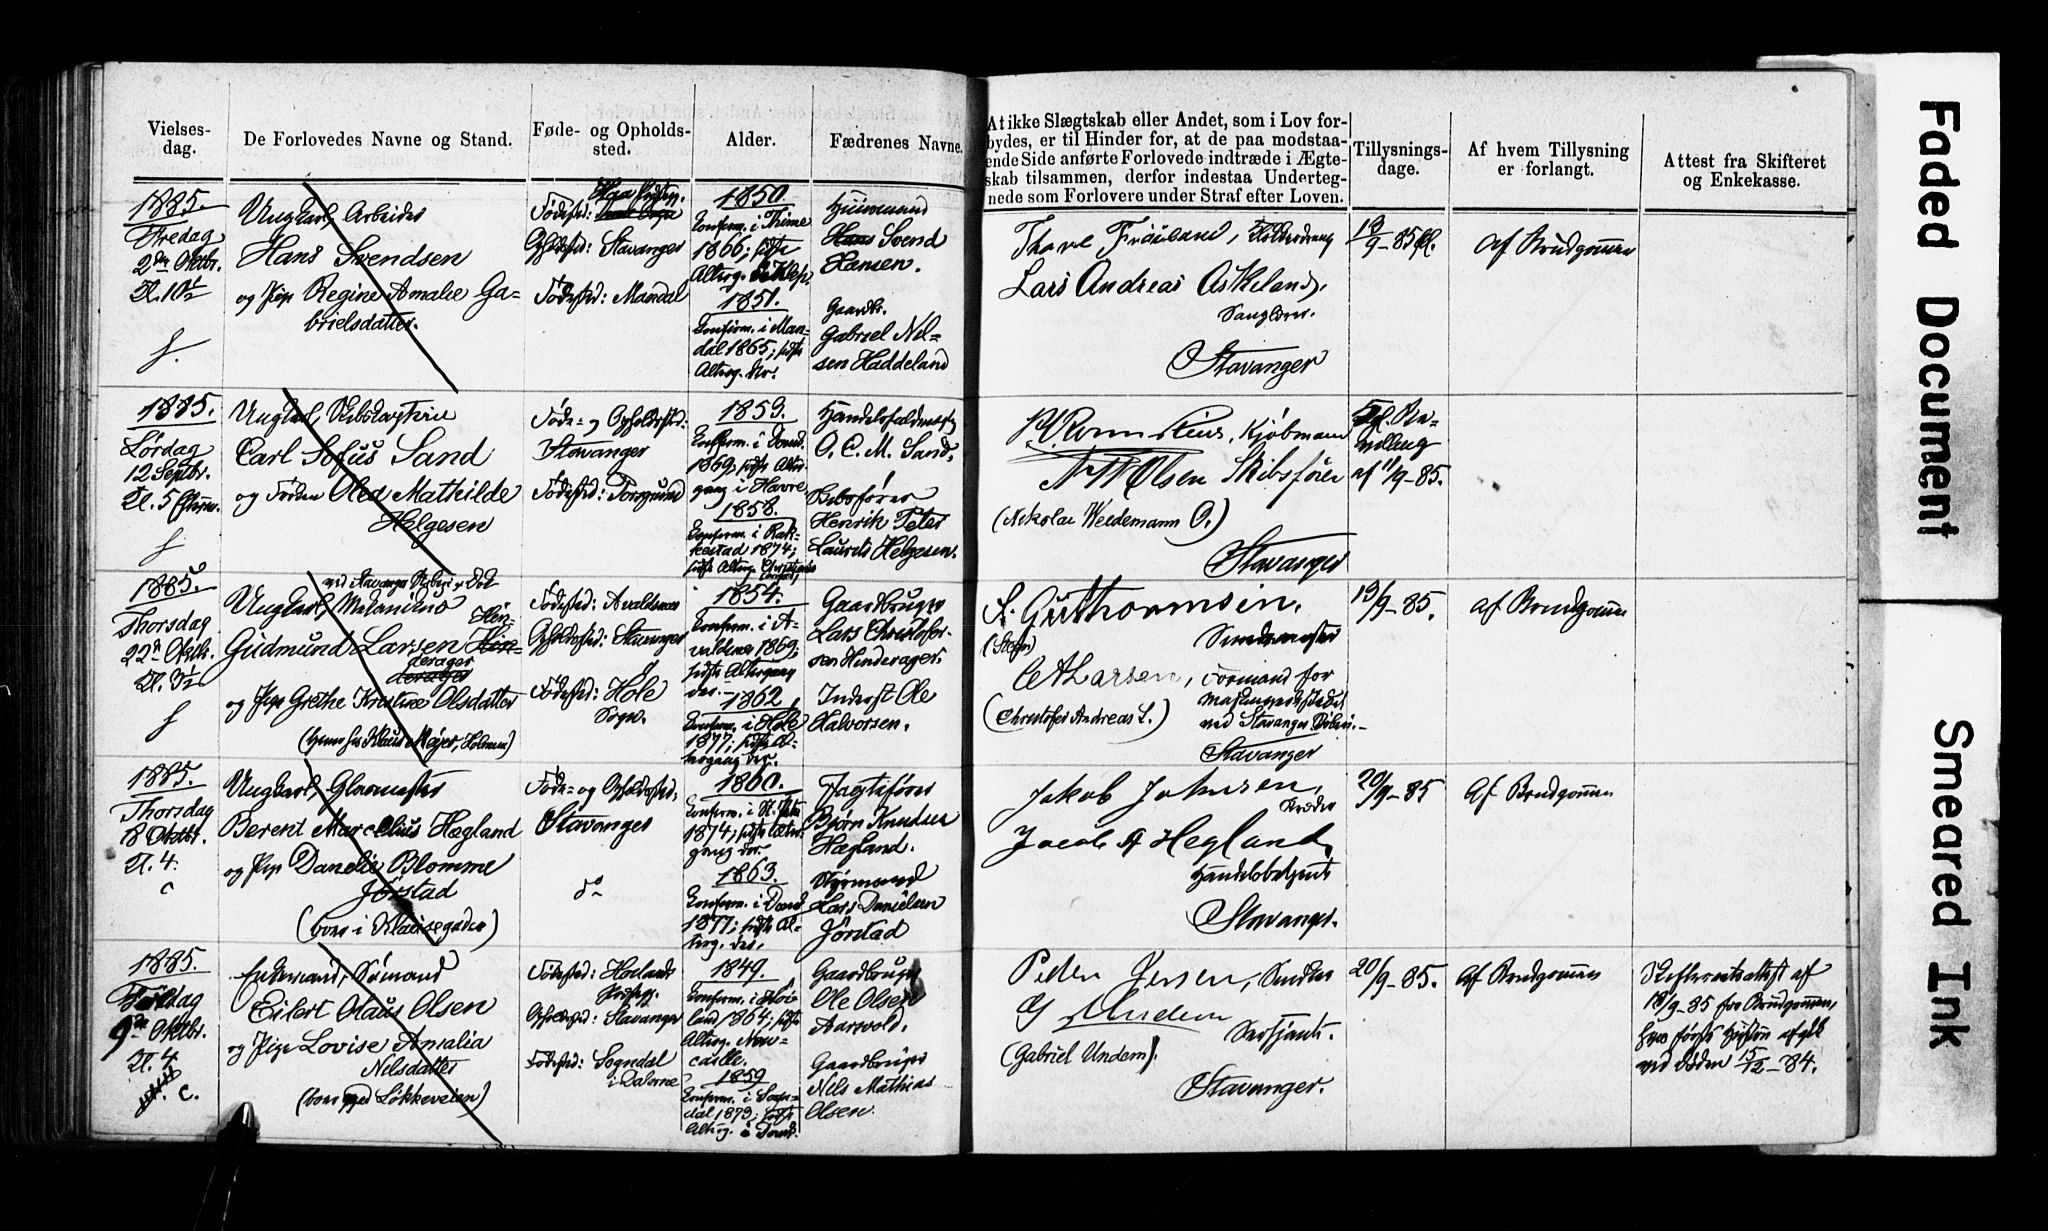 Vielses-
dag.
De Forlovedes Navne og Stand.
Føde- og Opholds-
sted.
Alder.
Fædrenes Navne.
At ikke Slægtskab eller Andet, som i Lov for-
bydes, er til Hinder for, at de paa modstaa-
ende Side anførte Forlovede indtræde i Ægte-
skab tilsammen, derfor indestaa Underteg-
nede som Forlovere under Straf efter Loven.
Tillysnings-
dage.
Af hvem Tillysning
er forlangt.
Attest fra Skifteret
og Enkekasse.
1885.
Fredag
2den Oktbr.
Kl. 10½
Ungkarl, Arbeider
Hans Svendsen
og Pige Regine Amalie Ga-
brielsdatter.
Fødested:
Opholdssted: Stavanger
Fødested: Mandal
1850.
Konfirm. i Thime
1866; sidste
Alterg. Klep.
1851.
Konfirm. i Man-
dal 1865; sidste
Altrg. do.
Huusmand
Svend
Hansen.
Gaardbr.
Gabriel Nel-
sen Haddeland
Lars Andreas Askeland,
Stavanger
9-85
af Brudgommen
1885.
Lørdag
12 Septbr.
Kl. 5 Efterm.
Ungkarl,
Carl Sofus Sand
og Frøken Olea Mathilde
Helgesen
Føde- og Opholdssted:
Stavanger
Fødested: Torsgund
1853.
Konfirm. i Domk.
1869; sidste Alter-
gang i Havre.
1858.
Konfirm. i Rak-
kestad 1874;
sidste Altrg.
O. C. M. Sand.
Skibsfører
Henrik Peter
Laurits Helgesen.
Kjøbmand
Olsen Skibsfører
(Nikolai Weidemann O.)
Stavanger
Kgl. Be-
villing
af 11/9-85.
1885.
Thorsdag
22de Oktbr.
Kl. 3½
ved Stavanger Støberi & Dok
Ungkarl,
Gudmund Larsen Hin-
derager
og Pige Grethe Kristine Olsdatter
(hjemme hos Klaus Meyer, Holmen)
Fødested: Avaldsnes
Opholdssted: Stavanger
Fødested: Hole
Sogn.
1854.
Konfirm. i A-
valdsnes 1869;
sidste Altergang
do.
1862.
Konfirm. i Hole
1877; sidste Al-
tergang do.
Gaardbruger
Lars Christofer-
sen Hinderager.
Inderst Ole
Halvorsen.
S. Guthormsen,
C A Larsen, Formand for
ved Stavanger Støberi.
(Christofer Andreas L.)
Stavanger
19/9-85.
af Brudgommen
1885.
Thorsdag
8 Oktbr.
Kl. 4.
Ungkarl, Glarmester
Berent Marcelius Hægland
og Pige Danelie Blomme
Jørstad
(boer i Klausegaden)
Føde- og Opholdssted:
Stavanger
do
1860.
Konfirm. i St. Petri
1874; sidste Alter-
gang do.
1863.
Konfirm. i Domk.
1877; sidste Al-
terg. do.
Jagtfører
Bjørn Knudsen
Hægland.
Styrmand
Lars Danielsen
Jørstad
Jakob Johnsen,
Jacob A Hegland,
Handelsbetjent
Stavanger.
20/9-85
Af Brudgommen
1885.
Fredag
9de Oktbr.
Kl. 4
c.
Enkemand, Sømand
Eilert Olaus Olsen
og Pige Lovise Amalia
Nelsdatter
(boer ved Løkkeveien)
Fødested: Høilands
Præstegj.
Opholdssted: Stavanger
Fødested: Sogndal
i Dalerne
1849.
Konfirm. i Høi-
land 1864; sidste
Altrg. New-
castle.
1859
Konfirm. i Sogn-
dal 1873; sidste
Altrg. i Domk.
Gaardbruger
Ole Olsen
Aarsvold.
Gaardbruger
Nels Mathias
Olsen.
Peder Jensen, Snedker
G Undem
Sersjant.
(Gabriel Undem).
Stavanger.
20/9-85.
Af Brudgommen
Skifteretsattest af
18/9-85 fra Brudgommen,
hvis første Hustru afgik
ved Døden 15/12-84.
Faded Document
Smeared Ink